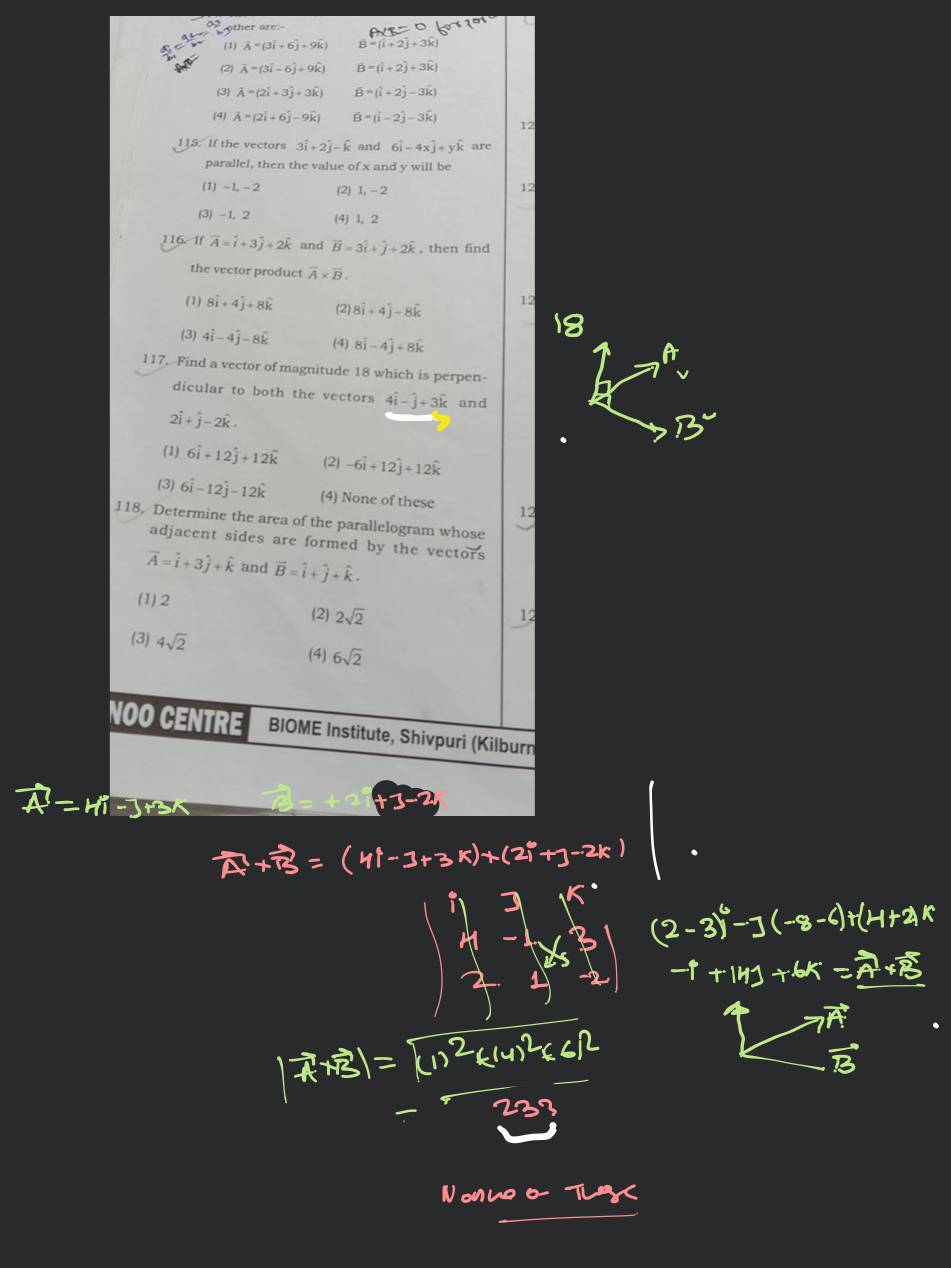 other are:-
A×B = 0 for
(1) A̅=(3î+6ĵ+9k̂) B̅=(î+2ĵ+3k̂)
(2) A̅=(3î−6ĵ+9k̂) B̅=(î+2ĵ+3k̂)
(3) A̅=(2î+3ĵ+3k̂) B̅=(î+2ĵ−3k̂)
(4) A̅=(2î+6ĵ−9k̂) B̅=(î−2ĵ−3k̂)
12
115. If the vectors 3î+2ĵ−k̂ and 6î−4xĵ+yk̂ are
parallel, then the value of x and y will be
(1) −1, −2 (2) 1, −2
12
(3) −1, 2 (4) 1, 2
116. If A̅=î+3ĵ+2k̂ and B̅=3î+ĵ+2k̂, then find
the vector product A̅×B̅.
(1) 8î+4ĵ+8k̂ (2) 8î+4ĵ−8k̂
12
(3) 4î−4ĵ−8k̂ (4) 8î−4ĵ+8k̂
117. Find a vector of magnitude 18 which is perpen-
dicular to both the vectors 4î−ĵ+3k̂ and
2î+ĵ−2k̂.
(1) 6î+12ĵ+12k̂ (2) −6î+12ĵ+12k̂
(3) 6î−12ĵ−12k̂ (4) None of these
12
118. Determine the area of the parallelogram whose
adjacent sides are formed by the vectors
A̅=î+3ĵ+k̂ and B̅=î+ĵ+k̂.
(1) 2 (2) 2√2
12
(3) 4√2 (4) 6√2
NOO CENTRE BIOME Institute, Shivpuri (Kilburn
18
A
B
A⃗ = 4i−J+3K B⃗ = +2i+J−2K
A⃗×B⃗ = (4i−J+3K)×(2i+J−2K)
i J K
4 −1 3
2 1 −2
(2−3)i−J(−8−6)+(4+2)K
−i+14J+6K = A⃗×B⃗
A⃗
B⃗
|A⃗×B⃗| = √(1)²+(14)²+6)²
= √233